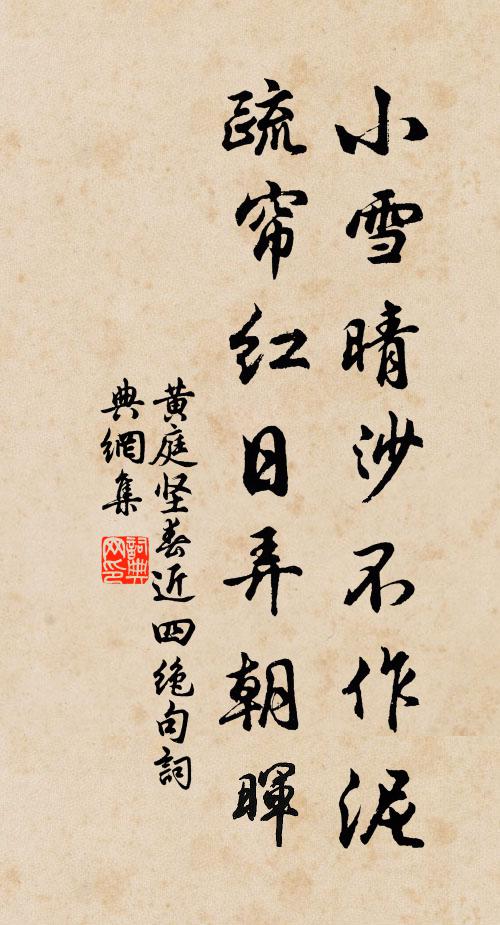 小雪晴沙不作泥
疏帘红日弄朝暉
黄庭坚春近四绝句詞
典網集
詞典
网印